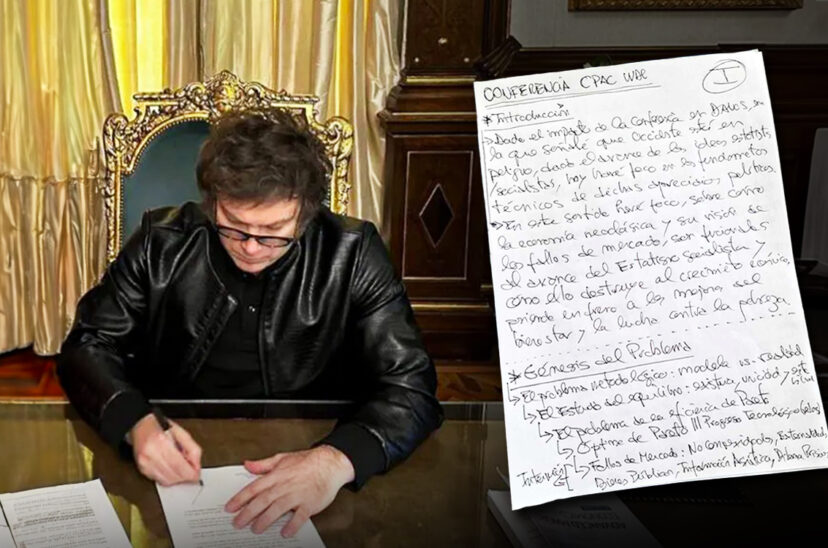 CONFERENCIA CPAC
I
* Introducción
→ Dado el impacto de la Conferencia en DAVOS, en
la que señalé que Occidente está en
peligro, dado el avance de las ideas estatistas
/socialistas, hoy haré foco en los fundamentos
técnicos de dichas apreciaciones políticas.
→ En este sentido haré foco, sobre como
la economía neoclásica y su visión de
los fallos de mercado, son funcionales
al avance del Estatismo socialista y
como ello destruye al crecimiento económico,
poniendo un freno a las mejoras del
bienestar y la lucha contra la pobreza.
* Génesis del Problema
→ El problema metodológico: modelo vs. realidad
↳ El Estudio del equilibrio: existencia, unicidad y
↳ El problema de la eficiencia de Pareto
↳ Óptimo de Pareto III Progreso Tecnológico
↳ Fallos de Mercado: No Competitivos, Externalidades,
Bienes Públicos, Información Asimétrica,